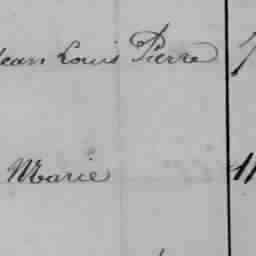 Jean Louis Pierre
Marie